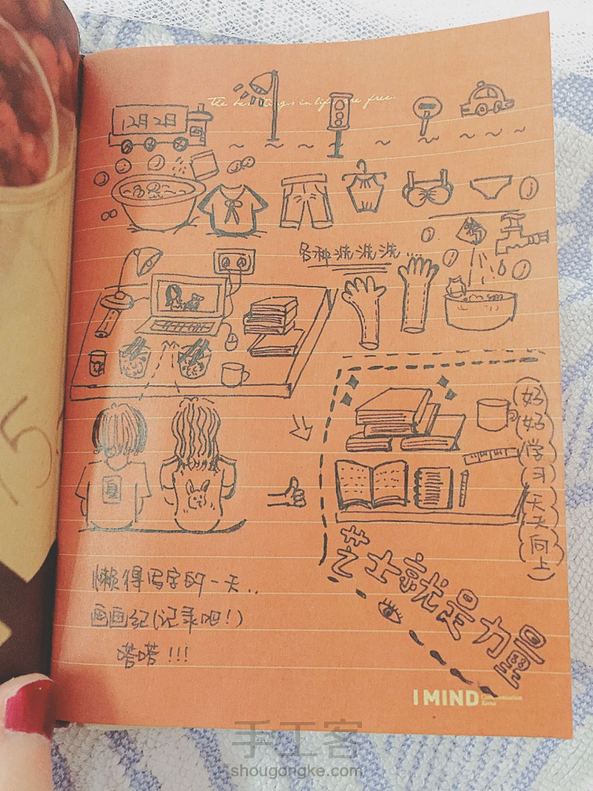 The best things in life are free
12月2日
各种洗洗洗...
好好学习天天向上
芝士就是力量
懒得写字的一天..
画画纪(记录吧!)
嗒嗒!!!
I MIND
手工客
shougongke.com